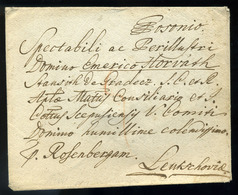 Posonio.
Spectabili ac Perillustri
Domino Emerico Horvath
Stansith de Gradecz. S. C. et R.
Aplæ Mattis Consiliario et I.
Cottus Scepusiensis V. Comiti
Domino humillime colendissimo.
p. Rosenbergam.